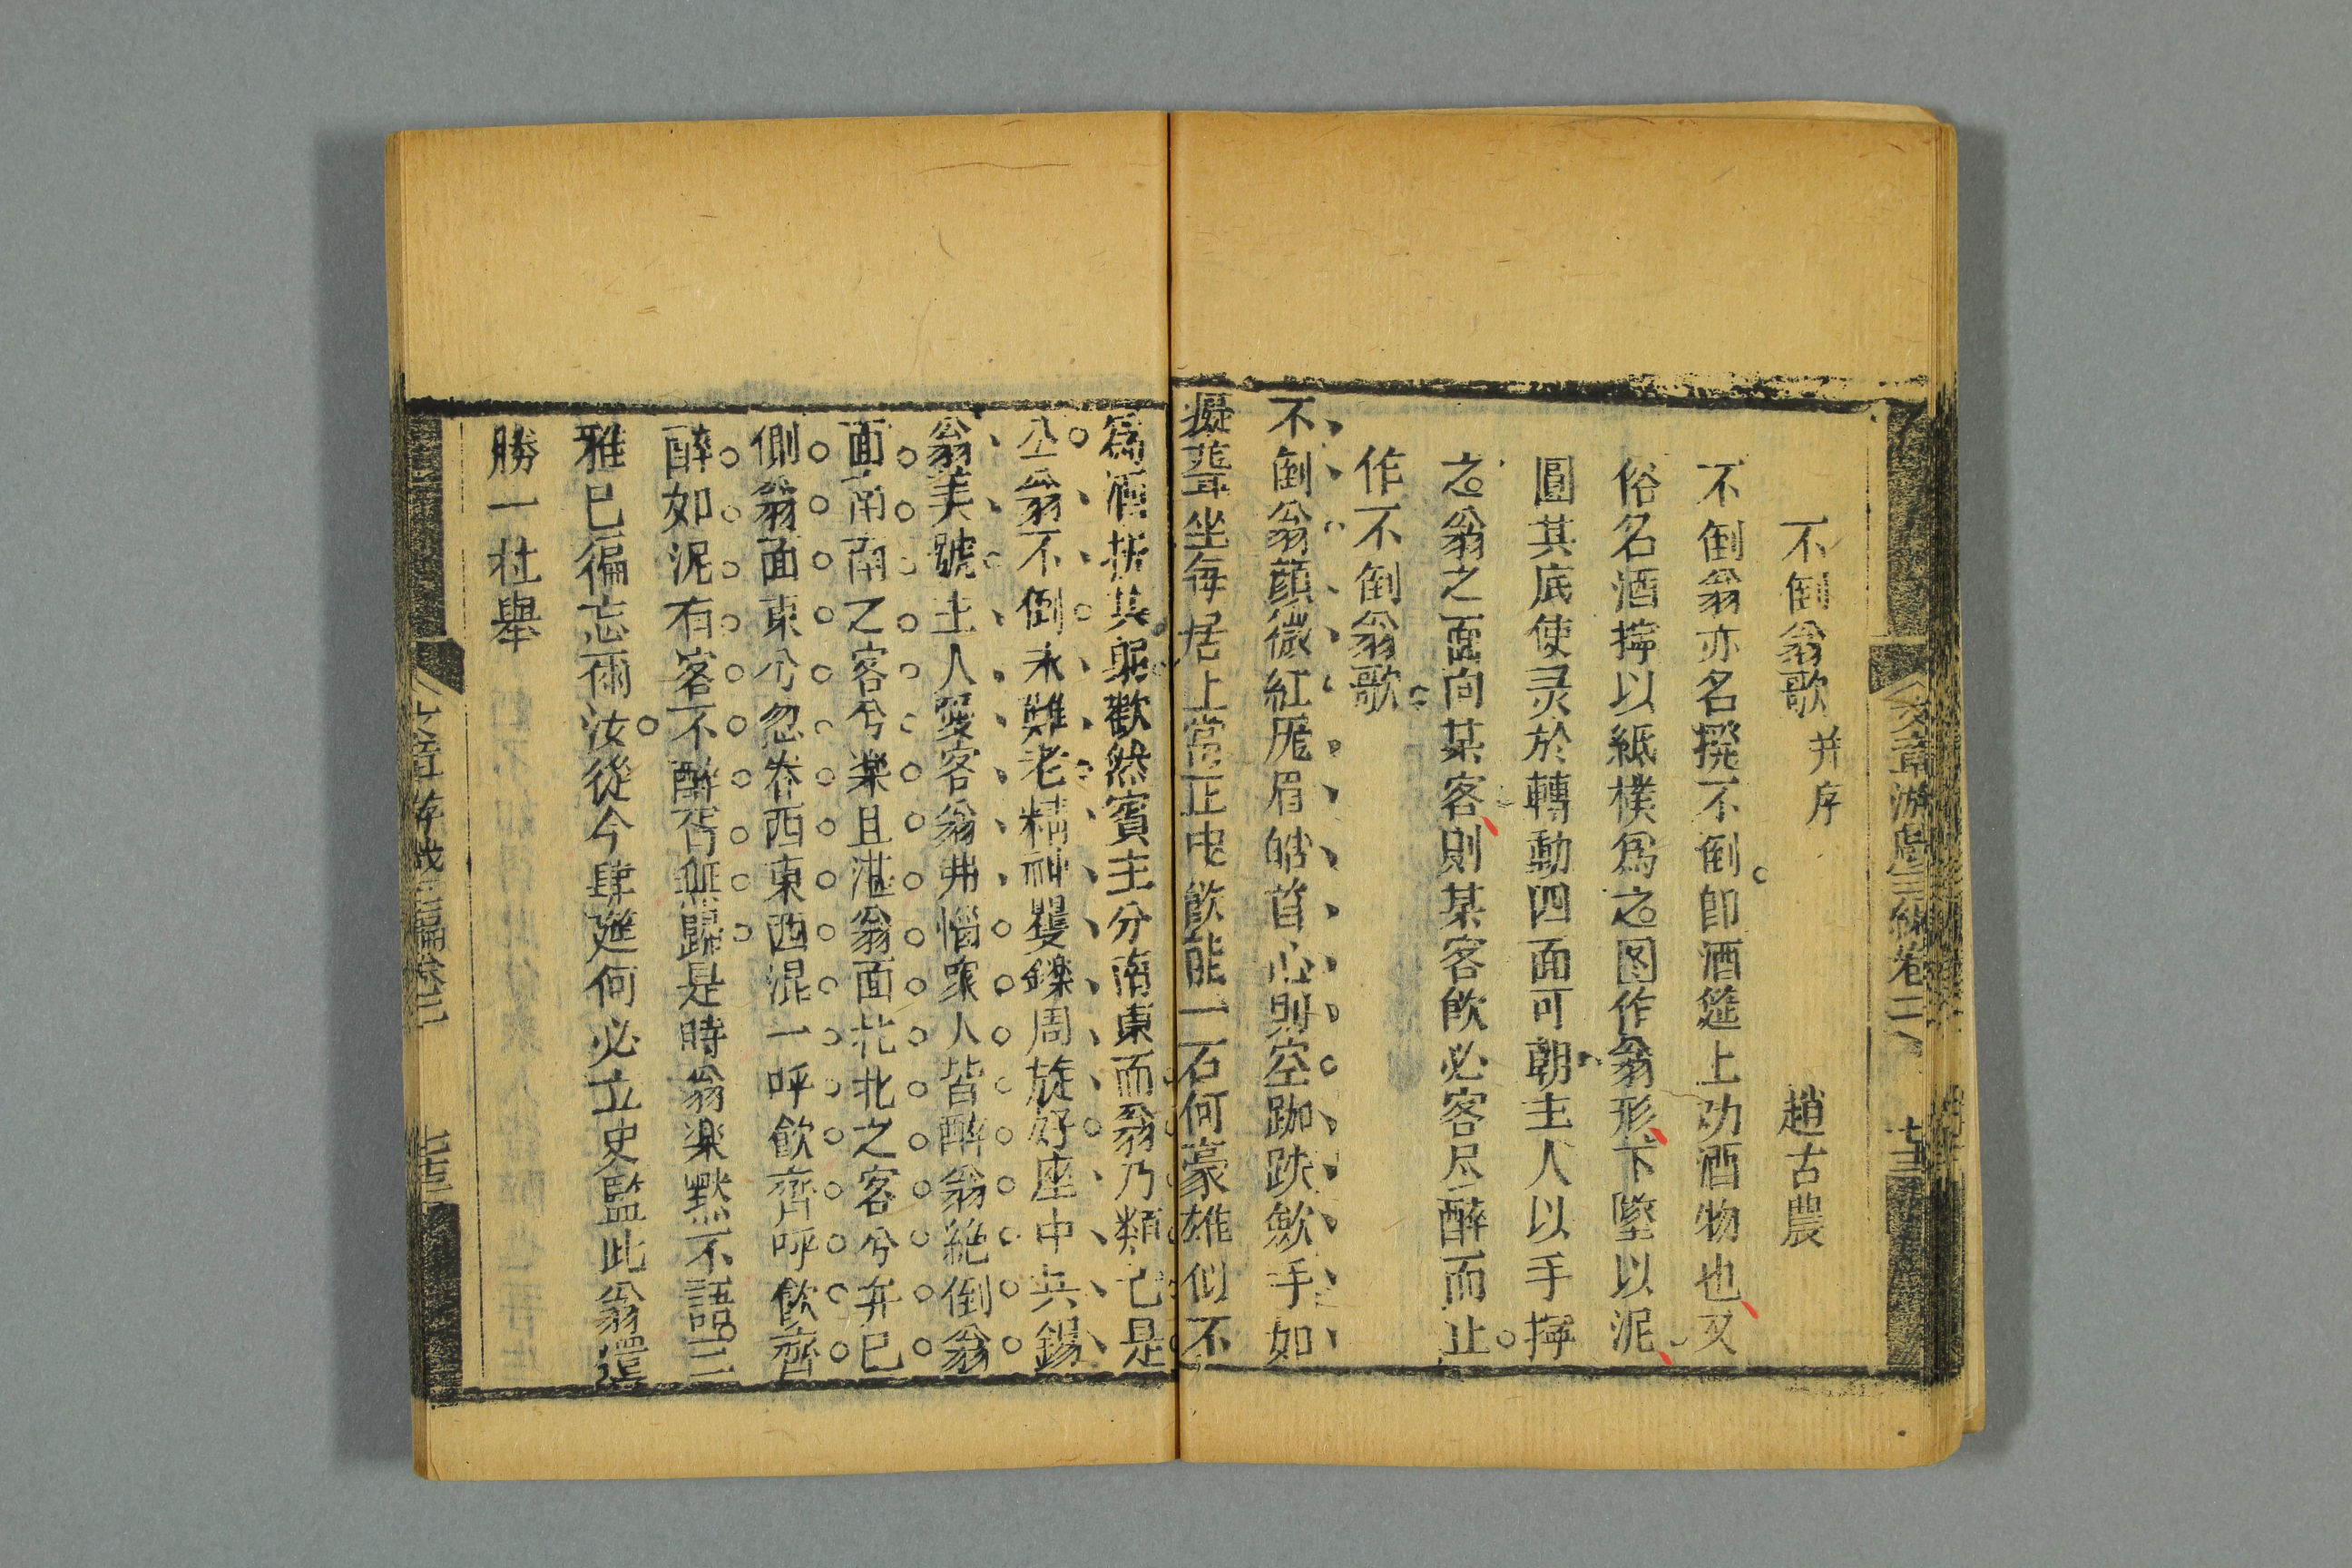 不倒翁歌 并序 趙古農
不倒翁亦名撰不倒卽酒筵上功酒物也又
俗名酒擰以紙樸爲之图作翁形下墜以泥
圓其底使灵於轉動四面可朝主人以手擰
之翁之面向某客則某客飲必客尽醉而止
作不倒翁歌
不倒翁顔微紅厖眉皓首心則空跏趺斂手如
癡聾坐每居上常正中飲能一石何豪雄似不
爲酒扶其躬歡然賓主分南東而翁乃類己是
公翁不倒永難老精神矍鑠周旋好座中共錫
翁美號主人愛客翁弗惱衆人皆醉翁絶倒翁
面南南之客兮楽且湛翁面北北之客兮弁已
側翁面東兮忽在西東西混一呼飲齊呼飲齊
醉如泥有客不醉胥無歸是時翁楽黙不語三
雅已徧忘爾汝從今肆筵何必立史監此翁還
勝一杜舉